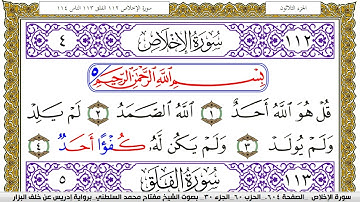 سورة الإخلاص ١١٢ الفلق ١١٣ الناس ١١٤
الجزء الثلاثون
١١٢ سُورَةُ الإِخْلَاصِ ٤
بِسْمِ اللَّهِ الرَّحْمَٰنِ الرَّحِيمِ ٥
قُلْ هُوَ اللَّهُ أَحَدٌ ١ اللَّهُ الصَّمَدُ ٢ لَمْ يَلِدْ
وَلَمْ يُولَدْ ٣ وَلَمْ يَكُن لَّهُ كُفْؤًا أَحَدٌ ٤
١١٣ سُورَةُ الْفَلَقِ ٥
سورة الإخلاص الصفحة ٦٠٤ الحزب ٦٠ الجزء ٣٠ بصوت الشيخ مفتاح محمد السلطني برواية إدريس عن خلف البزار